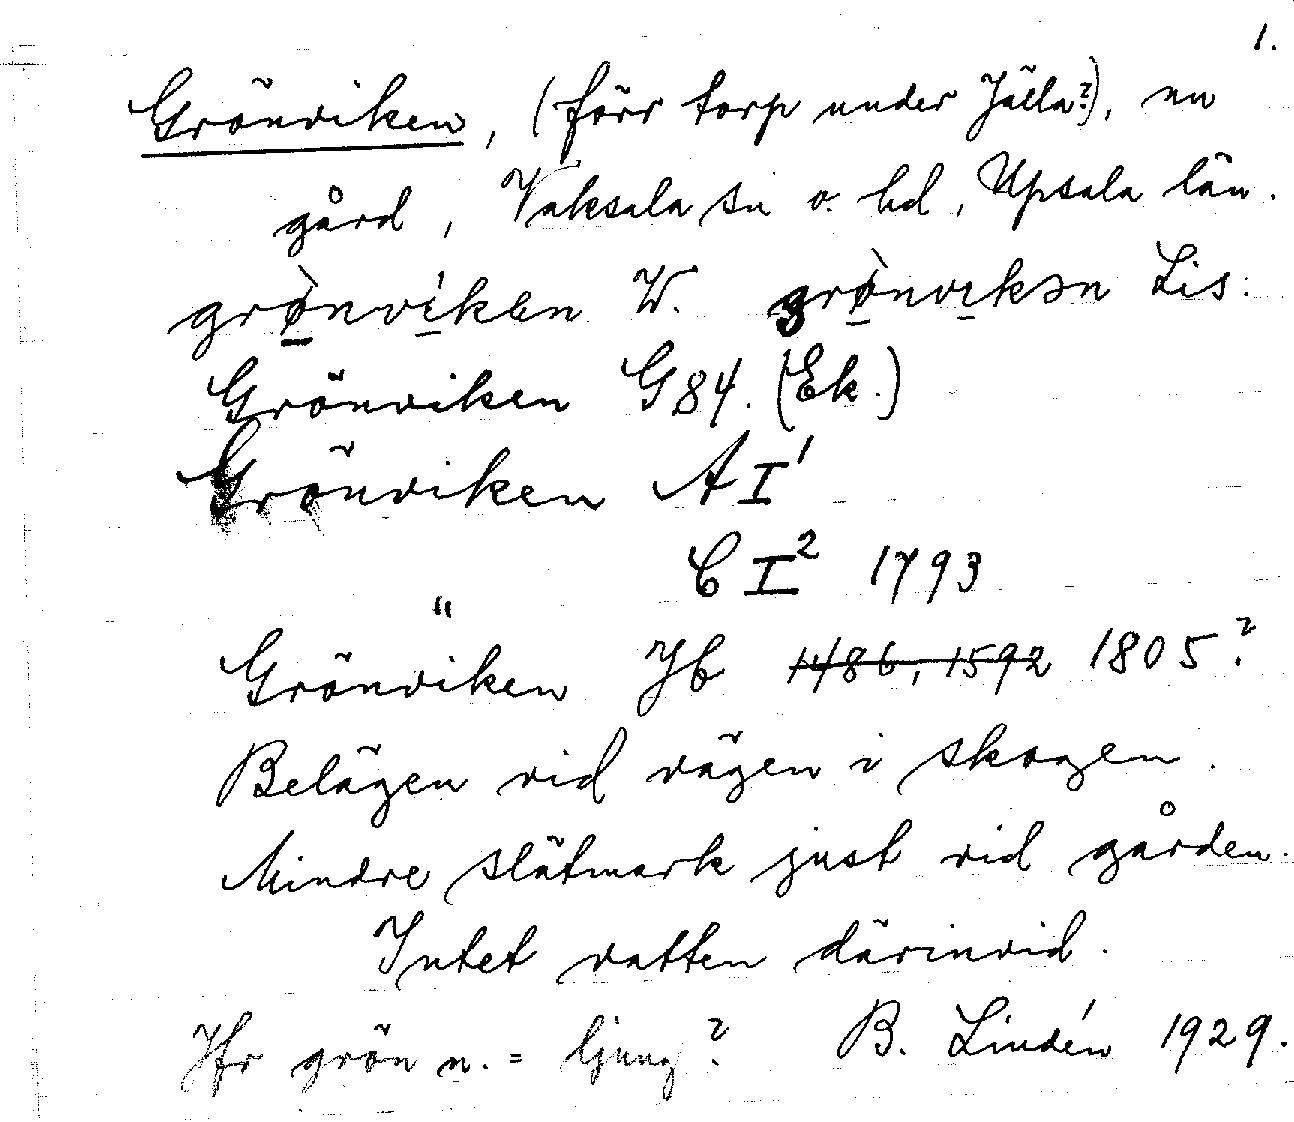 1.
Grönviken, (förr torp under Jälla?), nu
gård, Vaksala sn o. hd, Upsala län.
grø̀nvíkən W. grø̀nvikən Lis:
Grönviken G84. (Ek.)
Grönviken A I¹
" C I² 1793
Grönviken Jb 1486, 1592 1805?
Belägen vid vägen i skogen.
Mindre slätmark just vid gården.
Intet vatten därinvid.
Jfr grön n. = ljung? B. Lindén 1929.